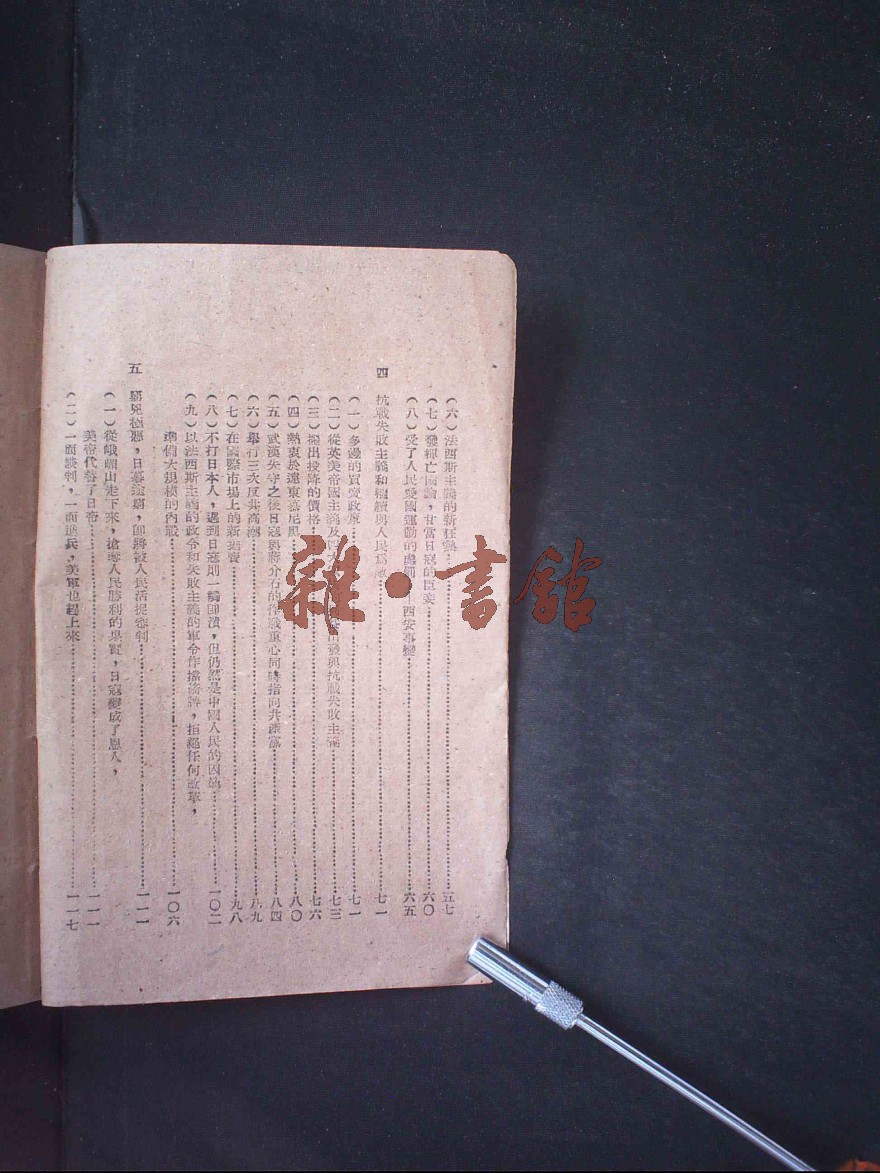 （六）法西斯主義的新狂熱……五七
（七）發揮亡國論，甘當日寇的臣妾……六〇
（八）受了人民愛國運動的處罰——西安事變……六五
四 抗戰失敗主義和繼續與人民爲敵……七一
（一）多邊的買賣政策……七一
（二）從英美帝國主義及四大出發與抗戰失敗主義……七三
（三）提出投降的價格……七六
（四）熱衷於遠東慕尼黑……八〇
（五）武漢失守之後日寇與蔣介石的作戰重心同時指向共產黨……八四
（六）舉行三次反共高潮……八九
（七）在國際市場上的新拍賣……九八
（八）不打日本人，遇到日寇則一觸即潰，但仍然是中國人民的……一〇二
（九）以法西斯主義的政令和失敗主義的軍令作擋箭牌，拒絕任何改革，
準備大規模的內戰……一〇六
五 窮兇極惡，日暮途窮，即將被人民活捉審判……一一一
（一）從峨嵋山走下來，搶奪人民勝利的果實，日寇變成了恩人，
美帝代替了日帝……一一一
（二）一面談判，一面進兵，美軍也趕上來……一一七
雜·書館